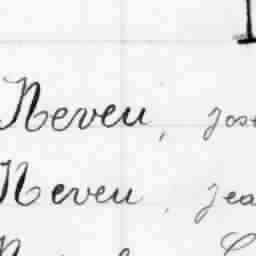 Neveu, Jos
Neveu, Jea